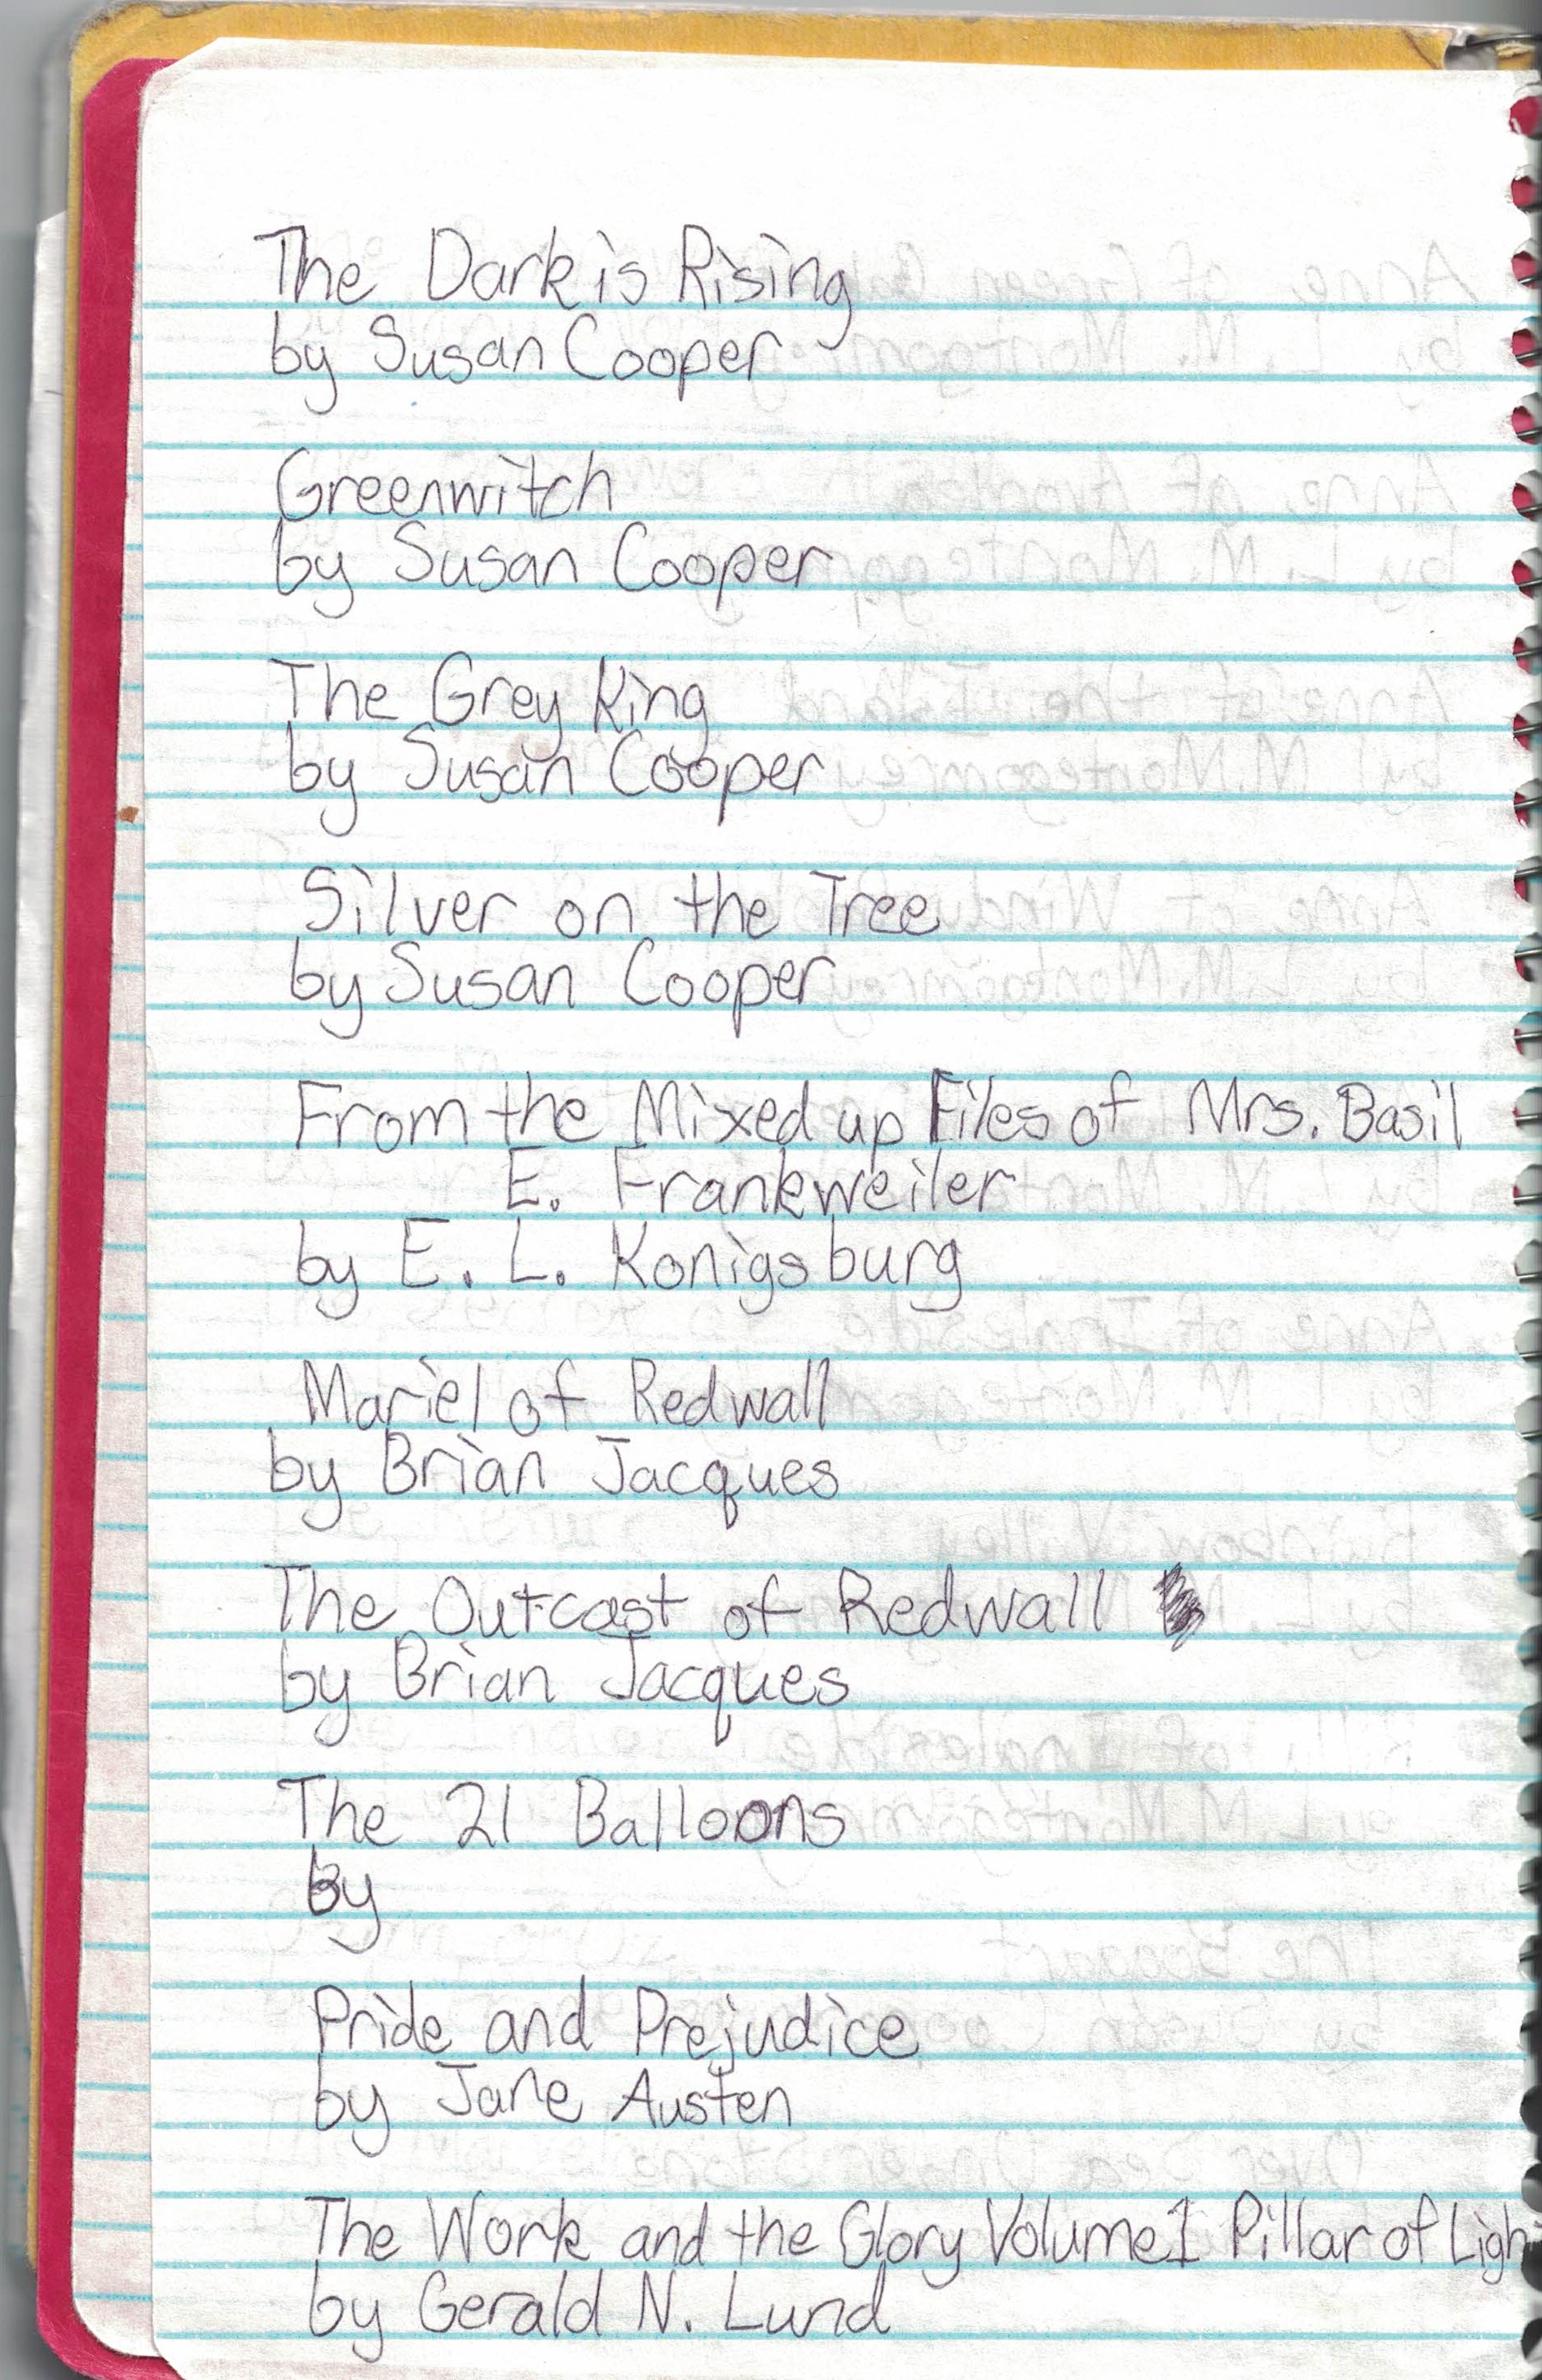 The Dark is Rising
by Susan Cooper
Greenwitch
by Susan Cooper
The Grey King
by Susan Cooper
Silver on the Tree
by Susan Cooper
From the Mixed up Files of Mrs. Basil
E. Frankweiler
by E. L. Konigsburg
Mariel of Redwall
by Brian Jacques
The Outcast of Redwall
by Brian Jacques
The 21 Balloons
By
Pride and Prejudice
by Jane Austen
The Work and the Glory Volume 1 Pillar of Ligh
by Gerald N. Lund